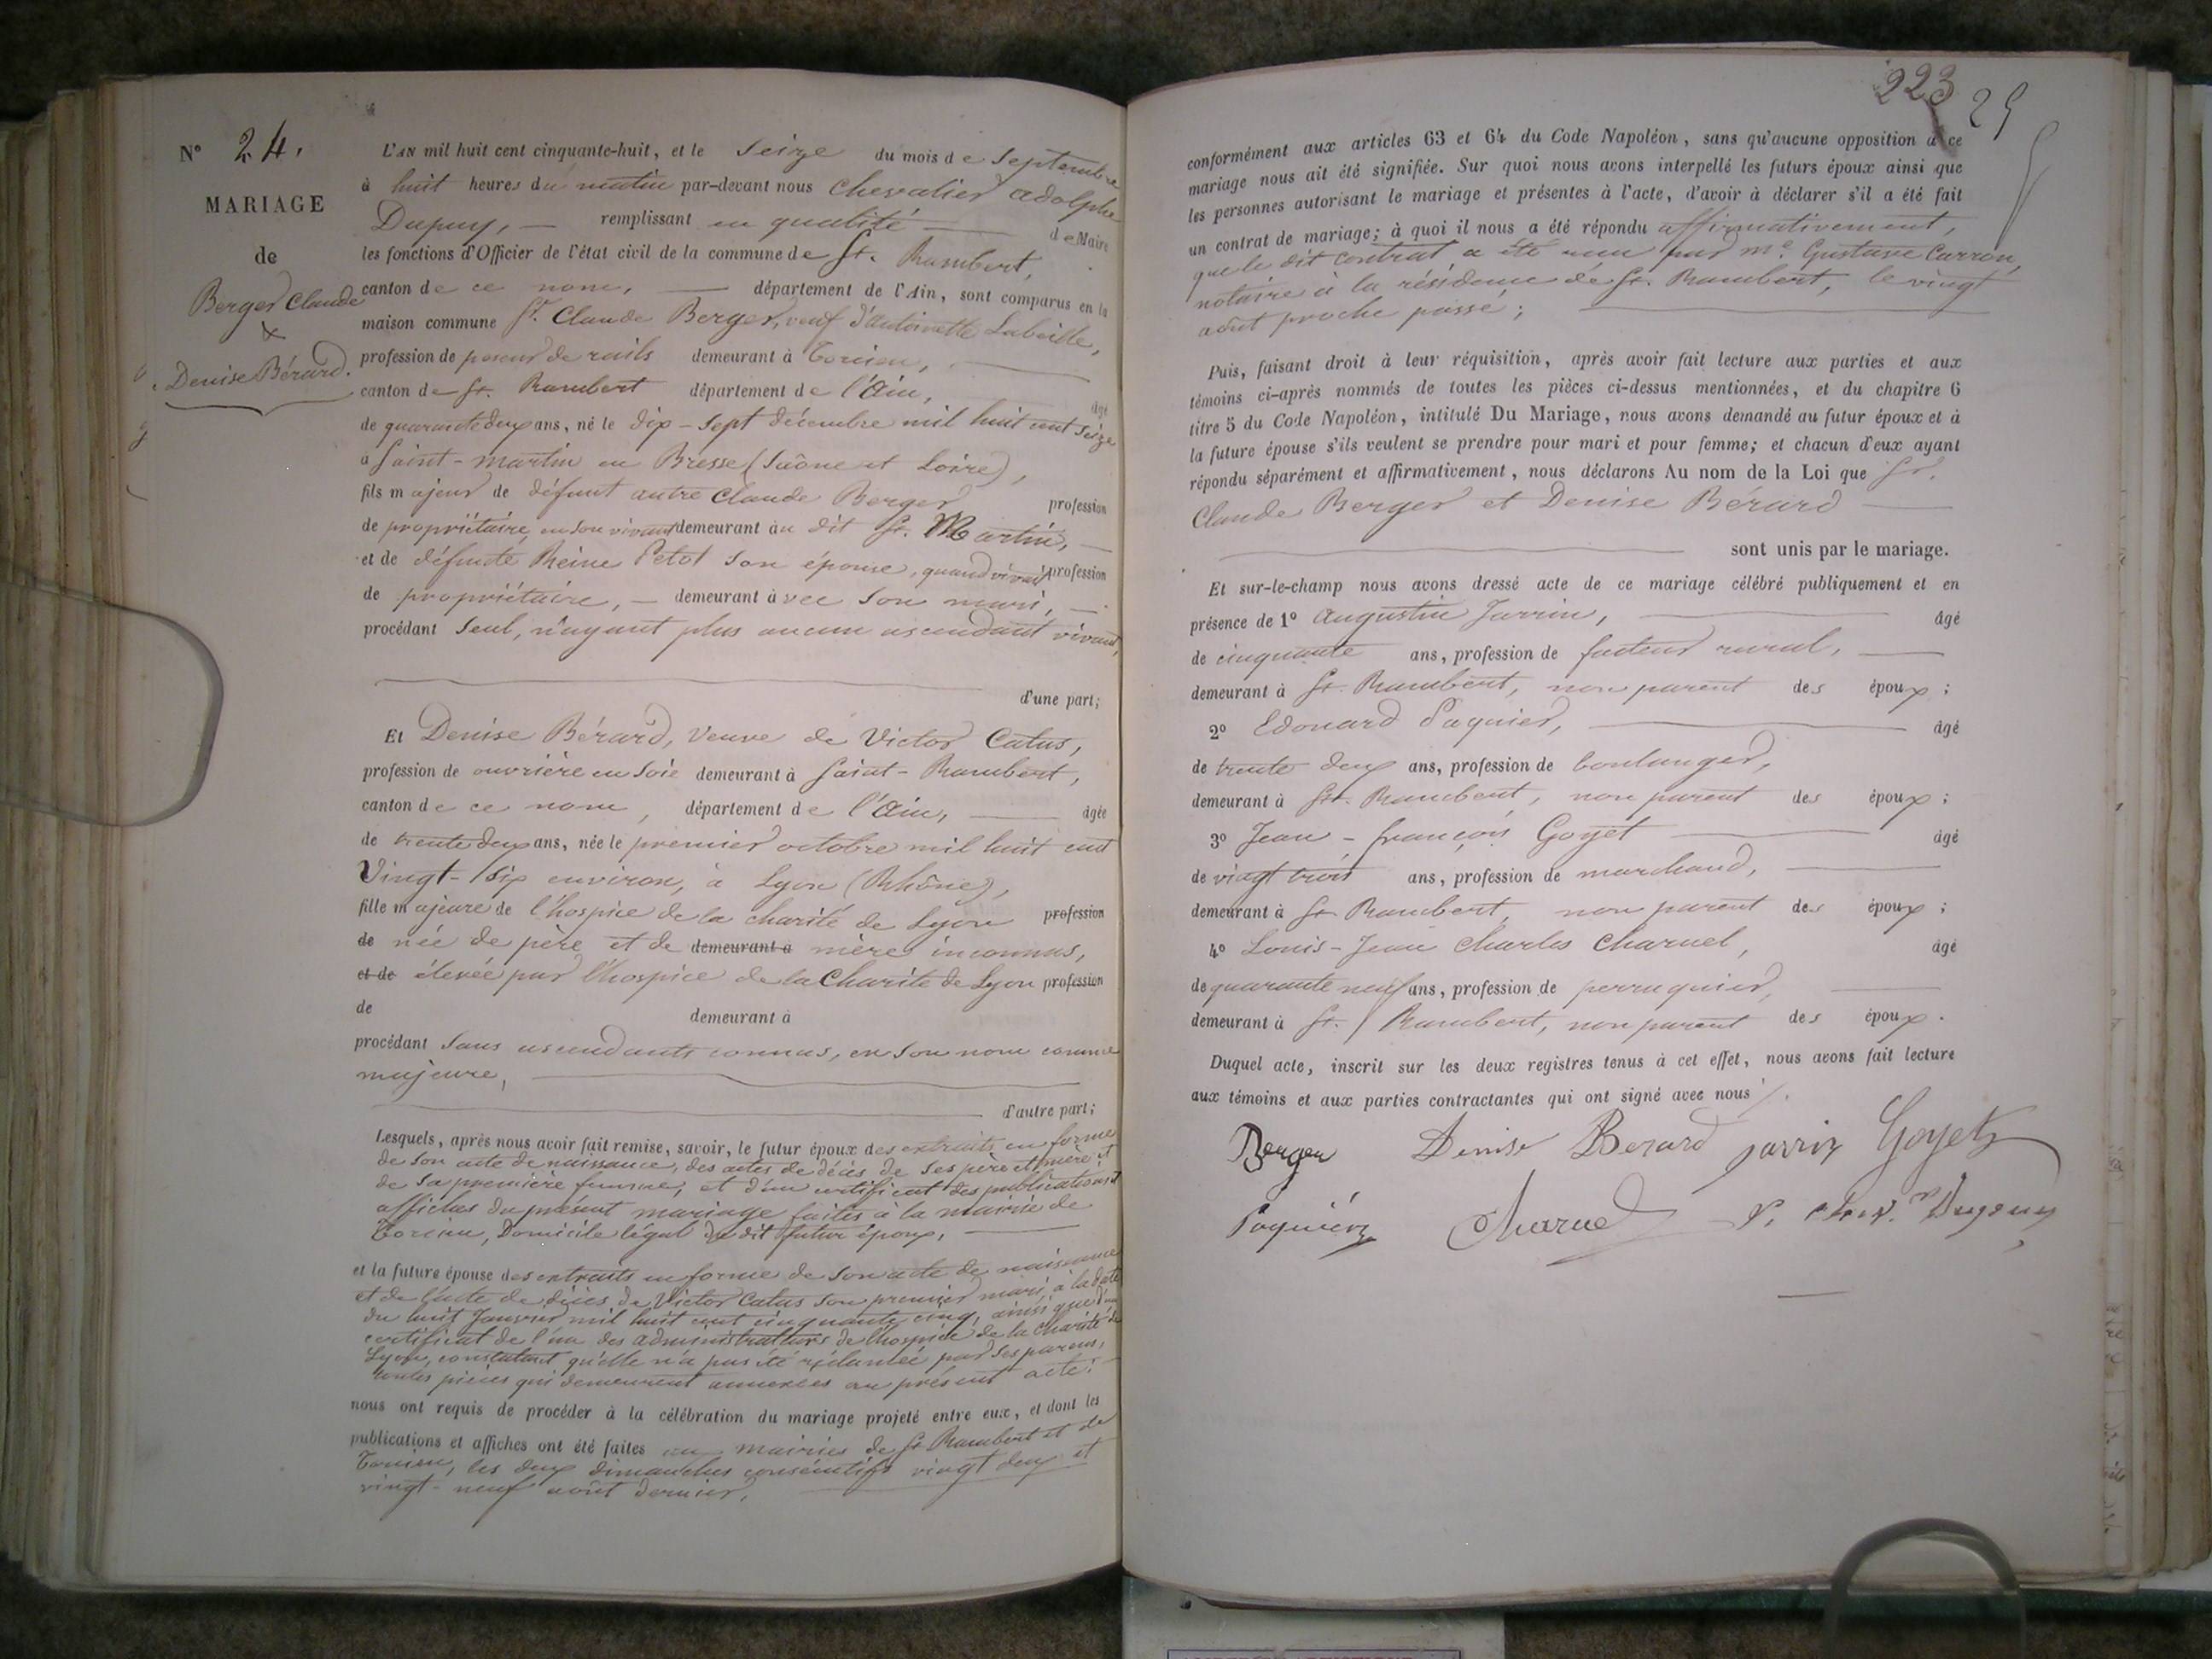 N° 24.
MARIAGE
de
Berger Claude
&
Denise Bérard.
L'AN mil huit cent cinquante-huit, et le Seize du mois de Septembre
à huit heures du matin par-devant nous Chevalier Adolphe
Dupuy, — remplissant en qualité — de Maire
les fonctions d'Officier de l'état civil de la commune de St. Rambert,
canton de ce nom, — département de l'Ain, sont comparus en la
maison commune Sr. Claude Berger, veuf d'antoinette Labeille,
profession de poseur de rails demeurant à Torcieu,
canton de St. Rambert département de l'Ain, âgé
de quarante deux ans, né le dix-sept décembre mil huit cent seize
à Saint-Martin en Bresse (Saône et Loire),
fils majeur de défunt autre Claude Berger profession
de propriétaire, en son vivant demeurant au dit St. Martin, —
et de défunte Reine Petot son épouse, quand vivait profession
de propriétaire, — demeurant avec son mari, —
procédant seul, n'ayant plus aucun ascendant vivant,
d'une part;
Et Denise Bérard, Veuve de Victor Catus,
profession de ouvrière en soie demeurant à Saint-Rambert,
canton de ce nom, département de l'Ain, — âgée
de trente deux ans, née le premier octobre mil huit cent
Vingt-six environ, à Lyon (Rhône),
fille majeure de l'hospice de la charité de Lyon profession
de née de père et de demeurant à mère inconnus,
et de élevée par l'hospice de la Charité de Lyon profession
de demeurant à
procédant sans ascendants connus, en son nom comme
majeure,
d'autre part;
Lesquels, après nous avoir fait remise, savoir, le futur époux des extraits en forme
de son acte de naissance, des actes de décès de ses père et mère, et
de sa première femme, et d'un certificat des publications et
affiches du présent mariage faites à la mairie de
Torcieu, Domicile légal du dit futur époux,
et la future épouse des extraits en forme de son acte de naissance
et de l'acte de décès de Victor Catus son premier mari, à la date
du huit Janvier mil huit cent cinquante cinq, ainsi que d'un
certificat de l'un des administrateurs de l'hospice de la Charité de
Lyon, constatant qu'elle n'a pas été réclamée par ses parens,
toutes pièces qui demeurent annexées au présent acte:
nous ont requis de procéder à la célébration du mariage projeté entre eux, et dont les
publications et affiches ont été faites aux mairies de St. Rambert et de
Torcieu, les deux dimanches consécutifs vingt deux et
vingt-neuf août dernier,
223 25
conformément aux articles 63 et 64 du Code Napoléon, sans qu'aucune opposition à ce
mariage nous ait été signifiée. Sur quoi nous avons interpellé les futurs époux ainsi que
les personnes autorisant le mariage et présentes à l'acte, d'avoir à déclarer s'il a été fait
un contrat de mariage; à quoi il nous a été répondu affirmativement,
que le dit contrat a été reçu par Me. Gustave Carron,
notaire à la résidence de St. Rambert, le vingt
août proche passé;
Puis, faisant droit à leur réquisition, après avoir fait lecture aux parties et aux
témoins ci-après nommés de toutes les pièces ci-dessus mentionnées, et du chapitre 6
titre 5 du Code Napoléon, intitulé Du Mariage, nous avons demandé au futur époux et à
la future épouse s'ils veulent se prendre pour mari et pour femme; et chacun d'eux ayant
répondu séparément et affirmativement, nous déclarons Au nom de la Loi que Sr.
Claude Berger et Denise Bérard —
sont unis par le mariage.
Et sur-le-champ nous avons dressé acte de ce mariage célébré publiquement et en
présence de 1° Augustin Jarrin, — âgé
de cinquante ans, profession de facteur rural, —
demeurant à St. Rambert, non parent des époux;
2° Edouard Paquier, — âgé
de trente deux ans, profession de boulanger,
demeurant à St. Rambert, non parent des époux;
3° Jean-françois Goyet — âgé
de vingt trois ans, profession de marchand, —
demeurant à St. Rambert, non parent des époux;
4° Louis-Jean Charles Charuel, âgé
de quarante neuf ans, profession de perruquier, —
demeurant à St. Rambert, non parent des époux.
Duquel acte, inscrit sur les deux registres tenus à cet effet, nous avons fait lecture
aux témoins et aux parties contractantes qui ont signé avec nous
Berger Denise Berard Jarrin Goyet
Paquier Charuel Dupuy